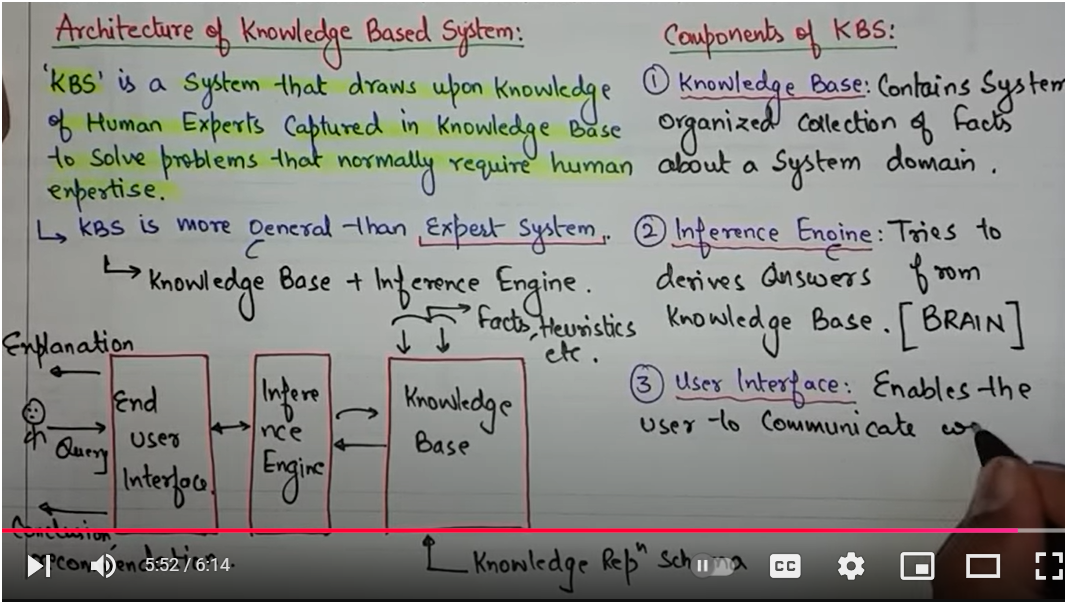 Architecture of Knowledge Based System:
'KBS' is a System that draws upon Knowledge
of Human Experts Captured in Knowledge Base
to Solve problems that normally require human
expertise.
↳ KBS is more General than Expert System.
↳ Knowledge Base + Inference Engine.
Facts, Heuristics
etc.
Explanation
Query
Conclusion
recommendation.
End
User
Interface.
Infere
nce
Engine
Knowledge
Base
Knowledge Repⁿ
Components of KBS:
① Knowledge Base: Contains System
Organized Collection of Facts
about a System domain.
② Inference Engine: Tries to
derives Answers from
Knowledge Base. [BRAIN]
③ User Interface: Enables the
user to Communicate
5:52 / 6:14
CC